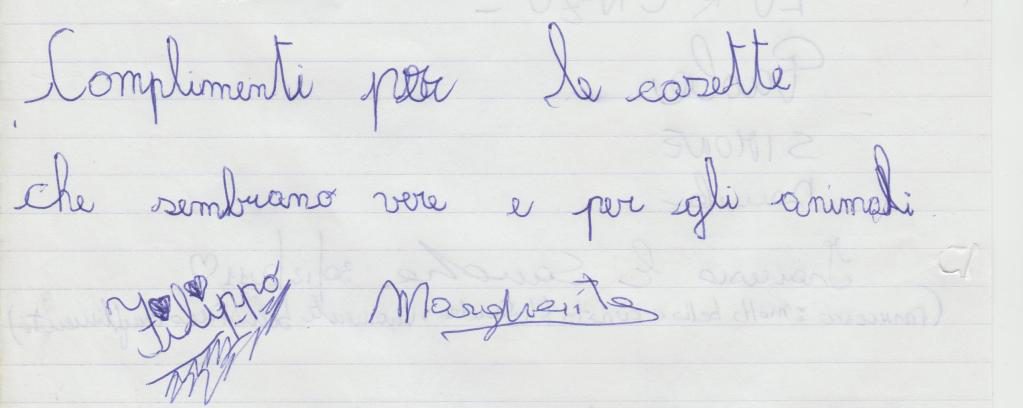 Complimenti per le casette
che sembrano vere e per gli animali
Filippo Margherita